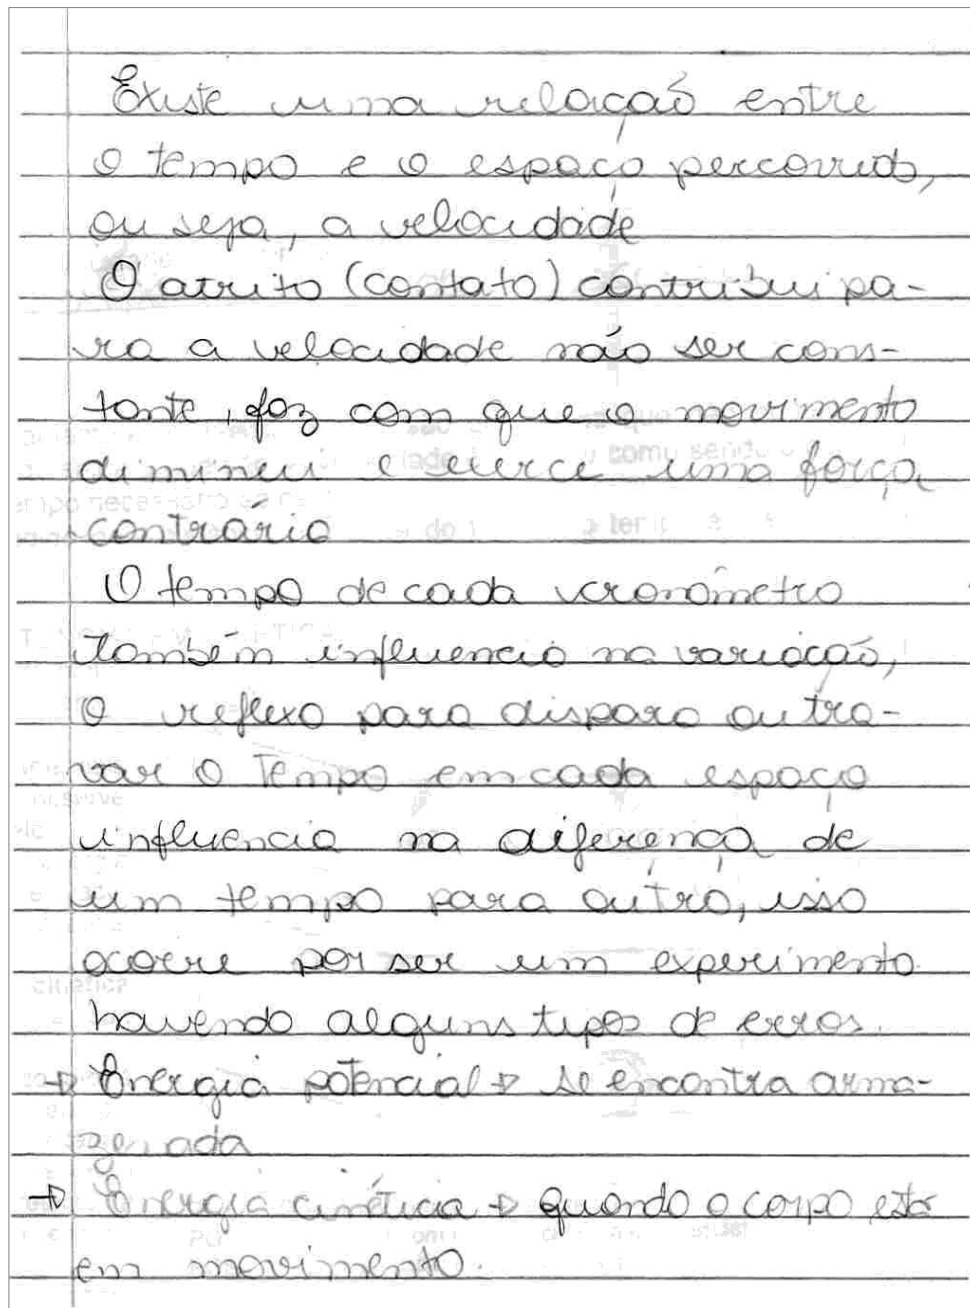 Existe uma relação entre
o tempo e o espaço percorrido,
ou seja, a velocidade
O atrito (contato) contribui pa-
ra a velocidade não ser cons-
tante, faz com que o movimento
diminui e exerce uma força
contrário
O tempo de cada cronômetro
também influencia na variação,
O reflexo para dispara ou tra-
var o tempo em cada espaço
influencia na diferença de
um tempo para outro, isso
ocorre por ser um experimento
havendo alguns tipos de erros.
→ Energia potencial → se encontra arma-
zenada
→ Energia cinética → quando o corpo está
em movimento.